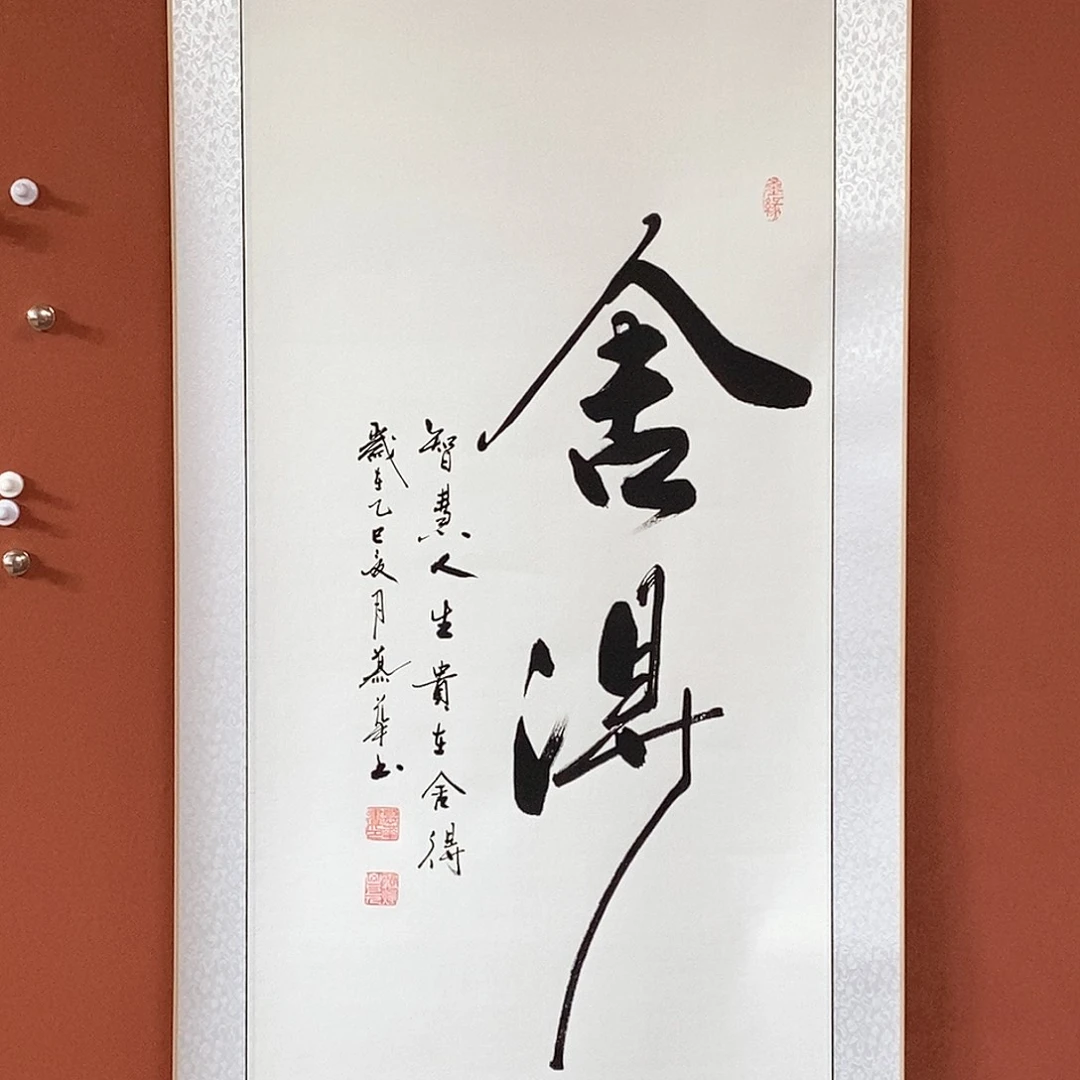 舍得
智慧人生貴在舍得
歲在乙巳夏月慕華书